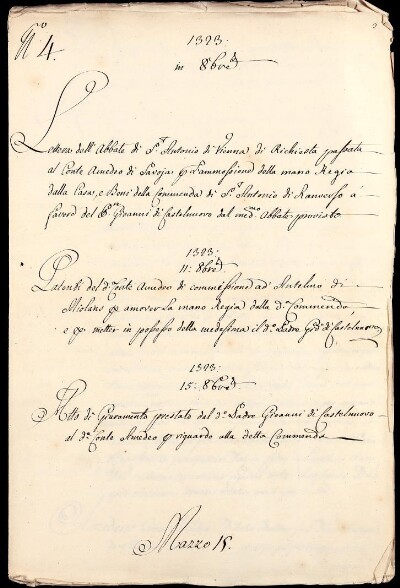 N.º 4.
1323:
in 8bre
Lettera dell' Abbate di S.t Antonio di Vienna di Richiesta passata
al Conte Amedeo di Savoja p l'ammossione della mano Regia
dalla Casa, e Beni della Commenda di S.t Antonio di Ranverso a
favore del Gioanni di Castelnuovo dal med.mo Abbate provisto
1323:
11: 8bre
Patenti del d.º Conte Amedeo di commissione ad Antelmo di
Miolans p amover la mano Regia dalla d.ª Commenda,
e p metter in possesso della medesima il d.º Gio di Castelnuovo
1323:
15: 8bre
Atto di Giuramento prestato dal d.º Gioanni di Castelnuovo
al d.º Conte Amedeo p riguardo alla detta Commenda
Mazzo 15.